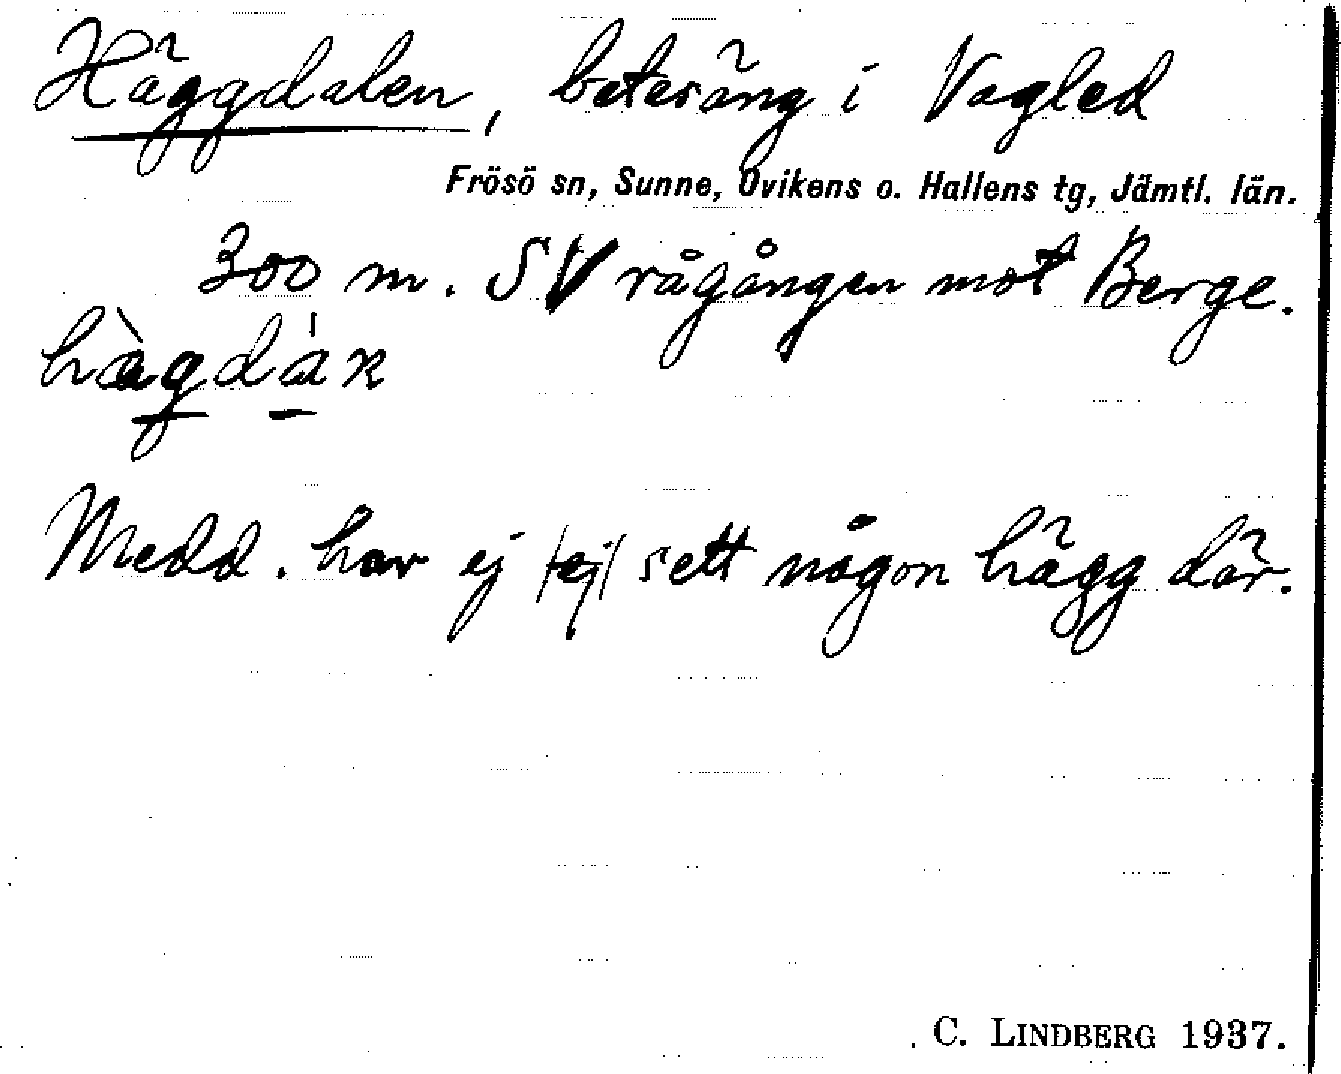 Häggdalen, betesäng i Vagled
Frösö sn, Sunne, Ovikens o. Hallens tg, Jämtl. län.
300 m. SV rågången mot Berge.
hàgdàn
Medd. har ej /ej/ sett någon hägg där.
C. LINDBERG 1937.